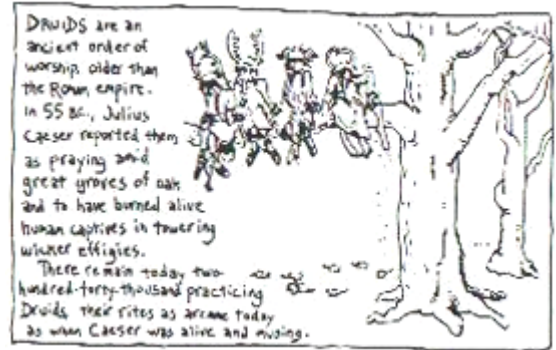 DRUIDS are an
ancient order of
worship, older than
the Roman empire.
In 55 B.C., Julius
Caeser reported them
as praying amid
great groves of oak
and to have burned alive
human captives in towering
wicker effigies.
There remain today two-
hundred-forty-thousand practicing
Druids, their rites as arcane today
as when Caeser was alive and musing.